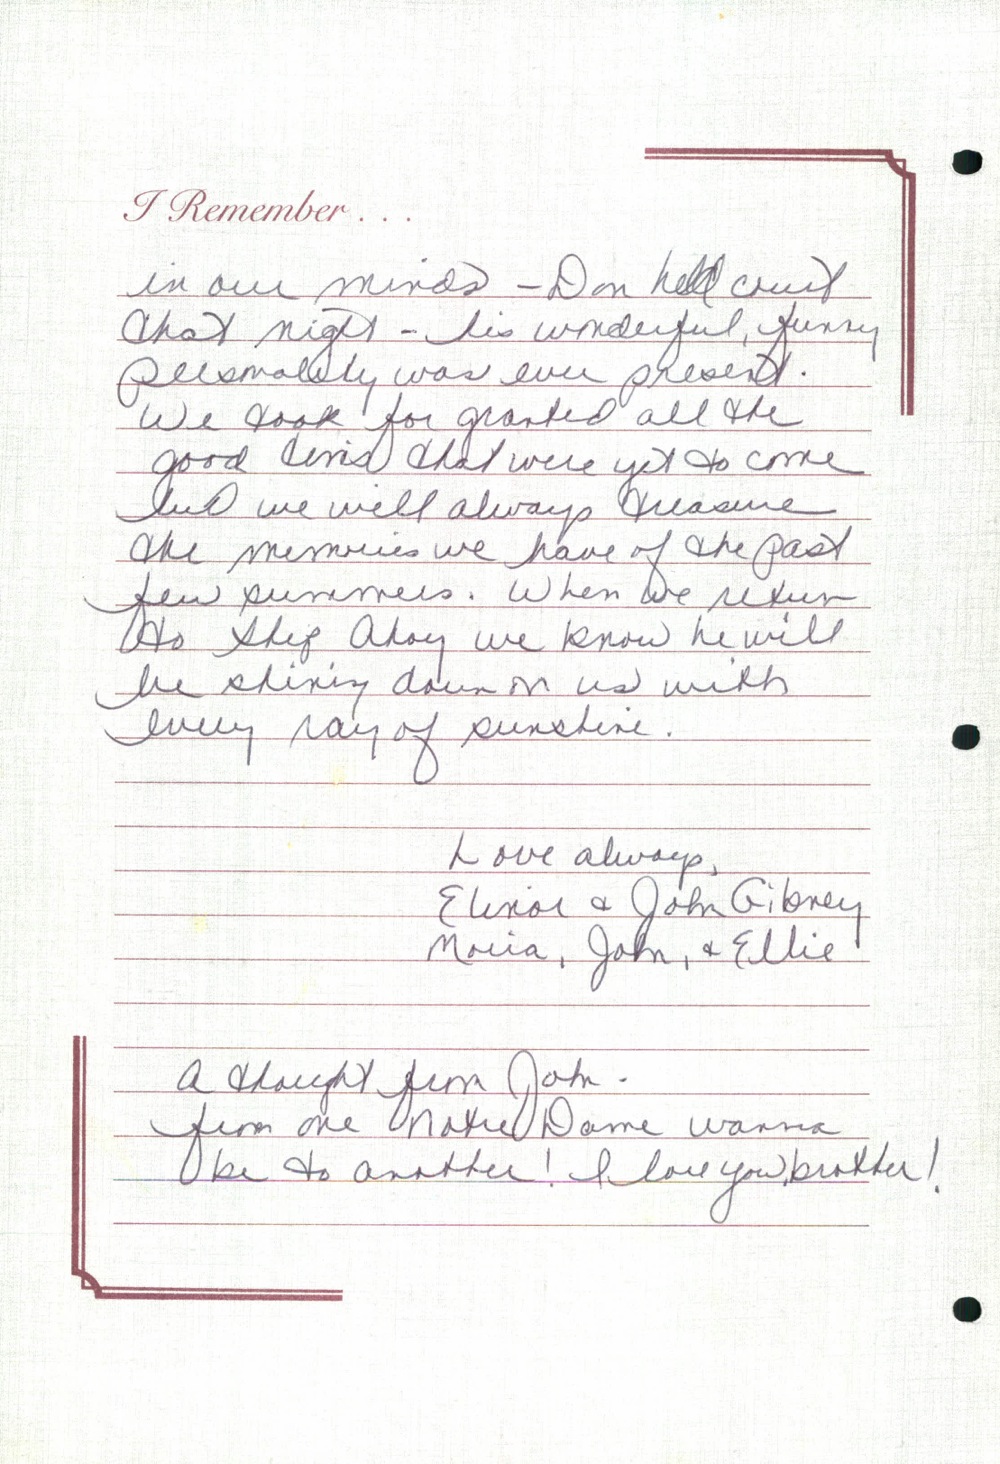 I Remember . . .
in our minds - Don held court
that night - his wonderful, funny
personality was ever present.
We took for granted all the
good times that were yet to come
but we will always treasure
the memories we have of the past
few summers. When we return
to Ship Ahoy we know he will
be shining down on us with
every ray of sunshine.
Love always,
Elinor & John Gibney
Moira, John, & Ellie
A thought from John -
from one Notre Dame wanna
be to another! I love you, brother!